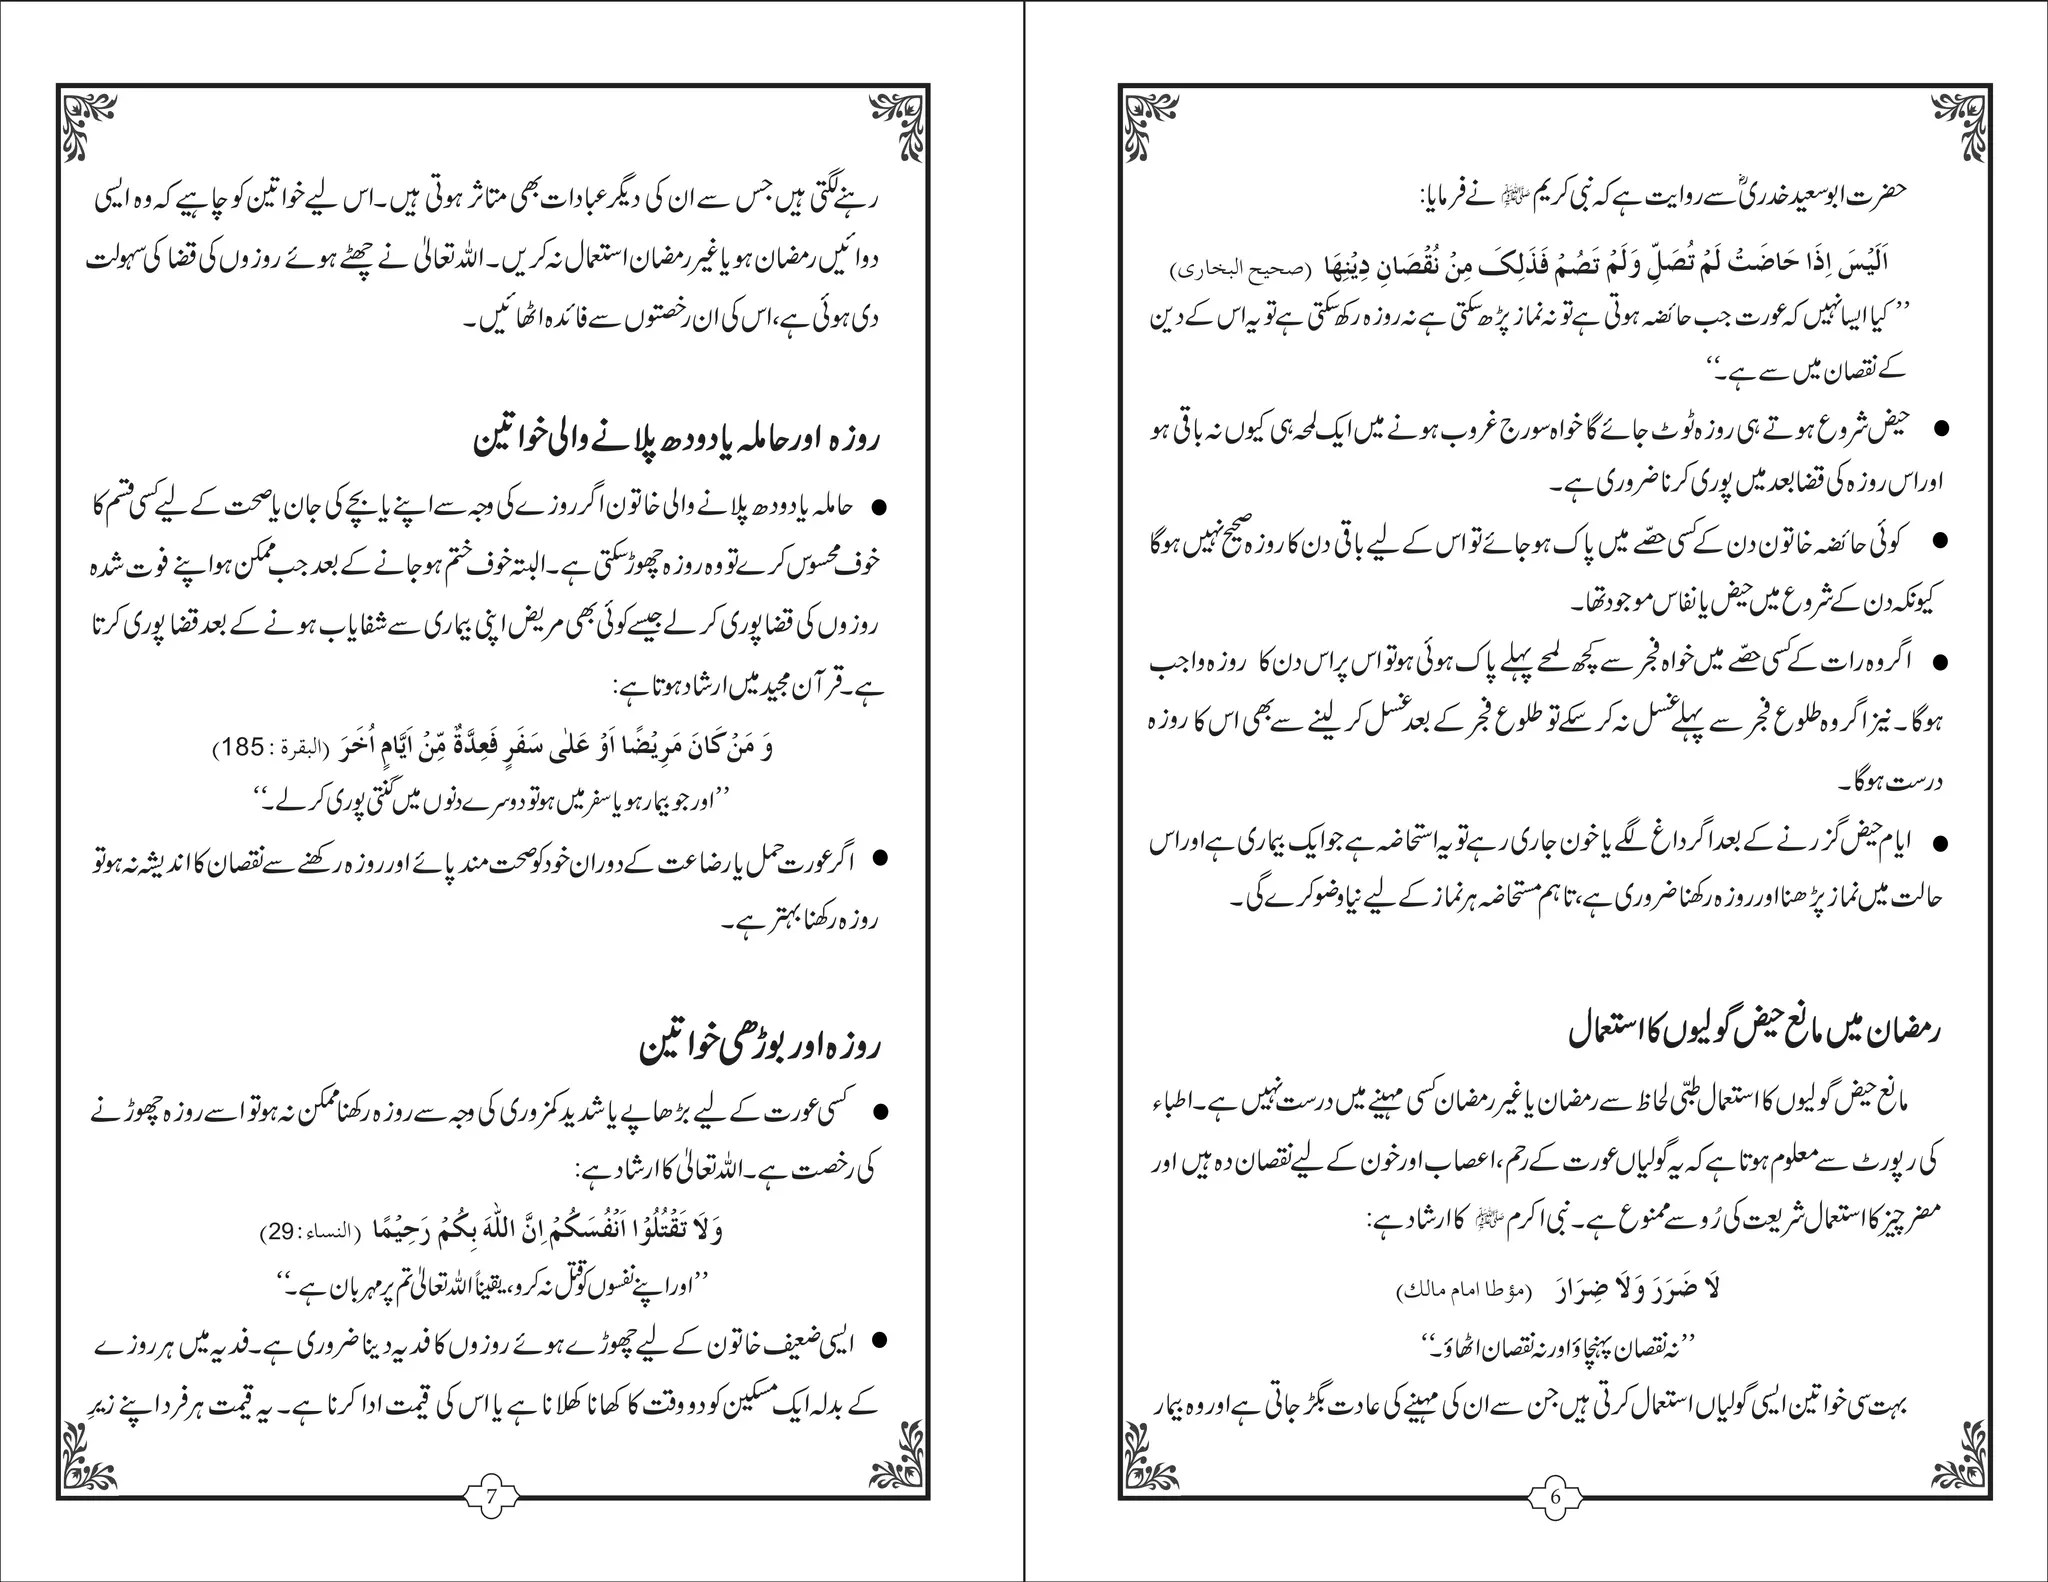 حضرت ابوسعید خدریؓ سے روایت ہے کہ نبی کریم ﷺ نے فرمایا:
اَلَيْسَ اِذَا حَاضَتْ لَمْ تُصَلِّ وَلَمْ تَصُمْ فَذَلِکَ مِنْ نُقْصَانِ دِيْنِهَا (صحیح البخاری)
’’کیا ایسا نہیں کہ عورت جب حائضہ ہوتی ہے تو نہ نماز پڑھ سکتی ہے نہ روزہ رکھ سکتی ہے تو یہ اس کے دین
کے نقصان میں سے ہے۔‘‘
● حیض شروع ہوتے ہی روزہ ٹوٹ جائے گا خواہ سورج غروب ہونے میں ایک لمحہ ہی کیوں نہ باقی ہو
اور اس روزہ کی قضا بعد میں پوری کرنا ضروری ہے۔
● کوئی حائضہ خاتون دن کے کسی حصّے میں پاک ہو جائے تو اس کے لیے باقی دن کا روزہ صحیح نہیں ہوگا
کیونکہ دن کے شروع میں حیض یا نفاس موجود تھا۔
● اگر وہ رات کے کسی حصّے میں خواہ فجر سے کچھ لمحے پہلے پاک ہوئی ہو تو اس پر اس دن کا روزہ واجب
ہوگا۔ نیز اگر وہ طلوع فجر سے پہلے غسل نہ کر سکے تو طلوع فجر کے بعد غسل کر لینے سے بھی اس کا روزہ
درست ہوگا۔
● ایام حیض گزرنے کے بعد اگر داغ لگے یا خون جاری رہے تو یہ استحاضہ ہے جو ایک بیماری ہے اور اس
حالت میں نماز پڑھنا اور روزہ رکھنا ضروری ہے، تاہم مستحاضہ ہر نماز کے لیے نیا وضو کرے گی۔
رمضان میں مانع حیض گولیوں کا استعمال
مانع حیض گولیوں کا استعمال طبّی لحاظ سے رمضان یا غیر رمضان کسی مہینے میں درست نہیں ہے۔ اطباء
کی رپورٹ سے معلوم ہوتا ہے کہ یہ گولیاں عورت کے رحم، اعصاب اور خون کے لیے نقصان دہ ہیں اور
مضر چیز کا استعمال شریعت کی رُو سے ممنوع ہے۔ نبی اکرم ﷺ کا ارشاد ہے:
لَا ضَرَرَ وَلَا ضِرَارَ (مؤطا امام مالک)
’’نہ نقصان پہنچاؤ اور نہ نقصان اٹھاؤ۔‘‘
بہت سی خواتین ایسی گولیاں استعمال کرتی ہیں جن سے ان کی مہینے کی عادت بگڑ جاتی ہے اور وہ بیمار
6
رہنے لگتی ہیں جس سے ان کی دیگر عبادات بھی متاثر ہوتی ہیں۔ اس لیے خواتین کو چاہیے کہ وہ ایسی
دوائیں رمضان ہو یا غیر رمضان استعمال نہ کریں۔ اللہ تعالیٰ نے چھٹے ہوئے روزوں کی قضا کی سہولت
دی ہوئی ہے، اس کی ان رخصتوں سے فائدہ اٹھائیں۔
روزہ اور حاملہ یا دودھ پلانے والی خواتین
● حاملہ یا دودھ پلانے والی خاتون اگر روزے کی وجہ سے اپنے یا بچے کی جان یا صحت کے لیے کسی قسم کا
خوف محسوس کرے تو وہ روزہ چھوڑ سکتی ہے۔ البتہ خوف ختم ہو جانے کے بعد جب ممکن ہو اپنے فوت شدہ
روزوں کی قضا پوری کر لے جیسے کوئی بھی مریض اپنی بیماری سے شفایاب ہونے کے بعد قضا پوری کرتا
ہے۔ قرآن مجید میں ارشاد ہوتا ہے:
وَ مَنْ کَانَ مَرِيْضًا اَوْ عَلٰی سَفَرٍ فَعِدَّةٌ مِّنْ اَيَّامٍ اُخَرَ (البقرة : 185)
’’اور جو بیمار ہو یا سفر میں ہو تو دوسرے دنوں میں گنتی پوری کر لے۔‘‘
● اگر عورت حمل یا رضاعت کے دوران خود کو صحت مند پائے اور روزہ رکھنے سے نقصان کا اندیشہ نہ ہو تو
روزہ رکھنا بہتر ہے۔
روزہ اور بوڑھی خواتین
● کسی عورت کے لیے بڑھاپے یا شدید کمزوری کی وجہ سے روزہ رکھنا ممکن نہ ہو تو اسے روزہ چھوڑنے
کی رخصت ہے۔ اللہ تعالیٰ کا ارشاد ہے:
وَلَا تَقْتُلُوْا اَنْفُسَکُمْ اِنَّ اللّٰهَ بِکُمْ رَحِيْمًا (النساء: 29)
’’اور اپنے نفسوں کو قتل نہ کرو، یقیناً اللہ تعالیٰ تم پر مہربان ہے۔‘‘
● ایسی ضعیف خاتون کے لیے چھوڑے ہوئے روزوں کا فدیہ دینا ضروری ہے۔ فدیہ میں ہر روزے
کے بدلہ ایک مسکین کو دو وقت کا کھانا کھلانا ہے یا اس کی قیمت ادا کرنا ہے۔ یہ قیمت ہر فرد اپنے زیرِ
7